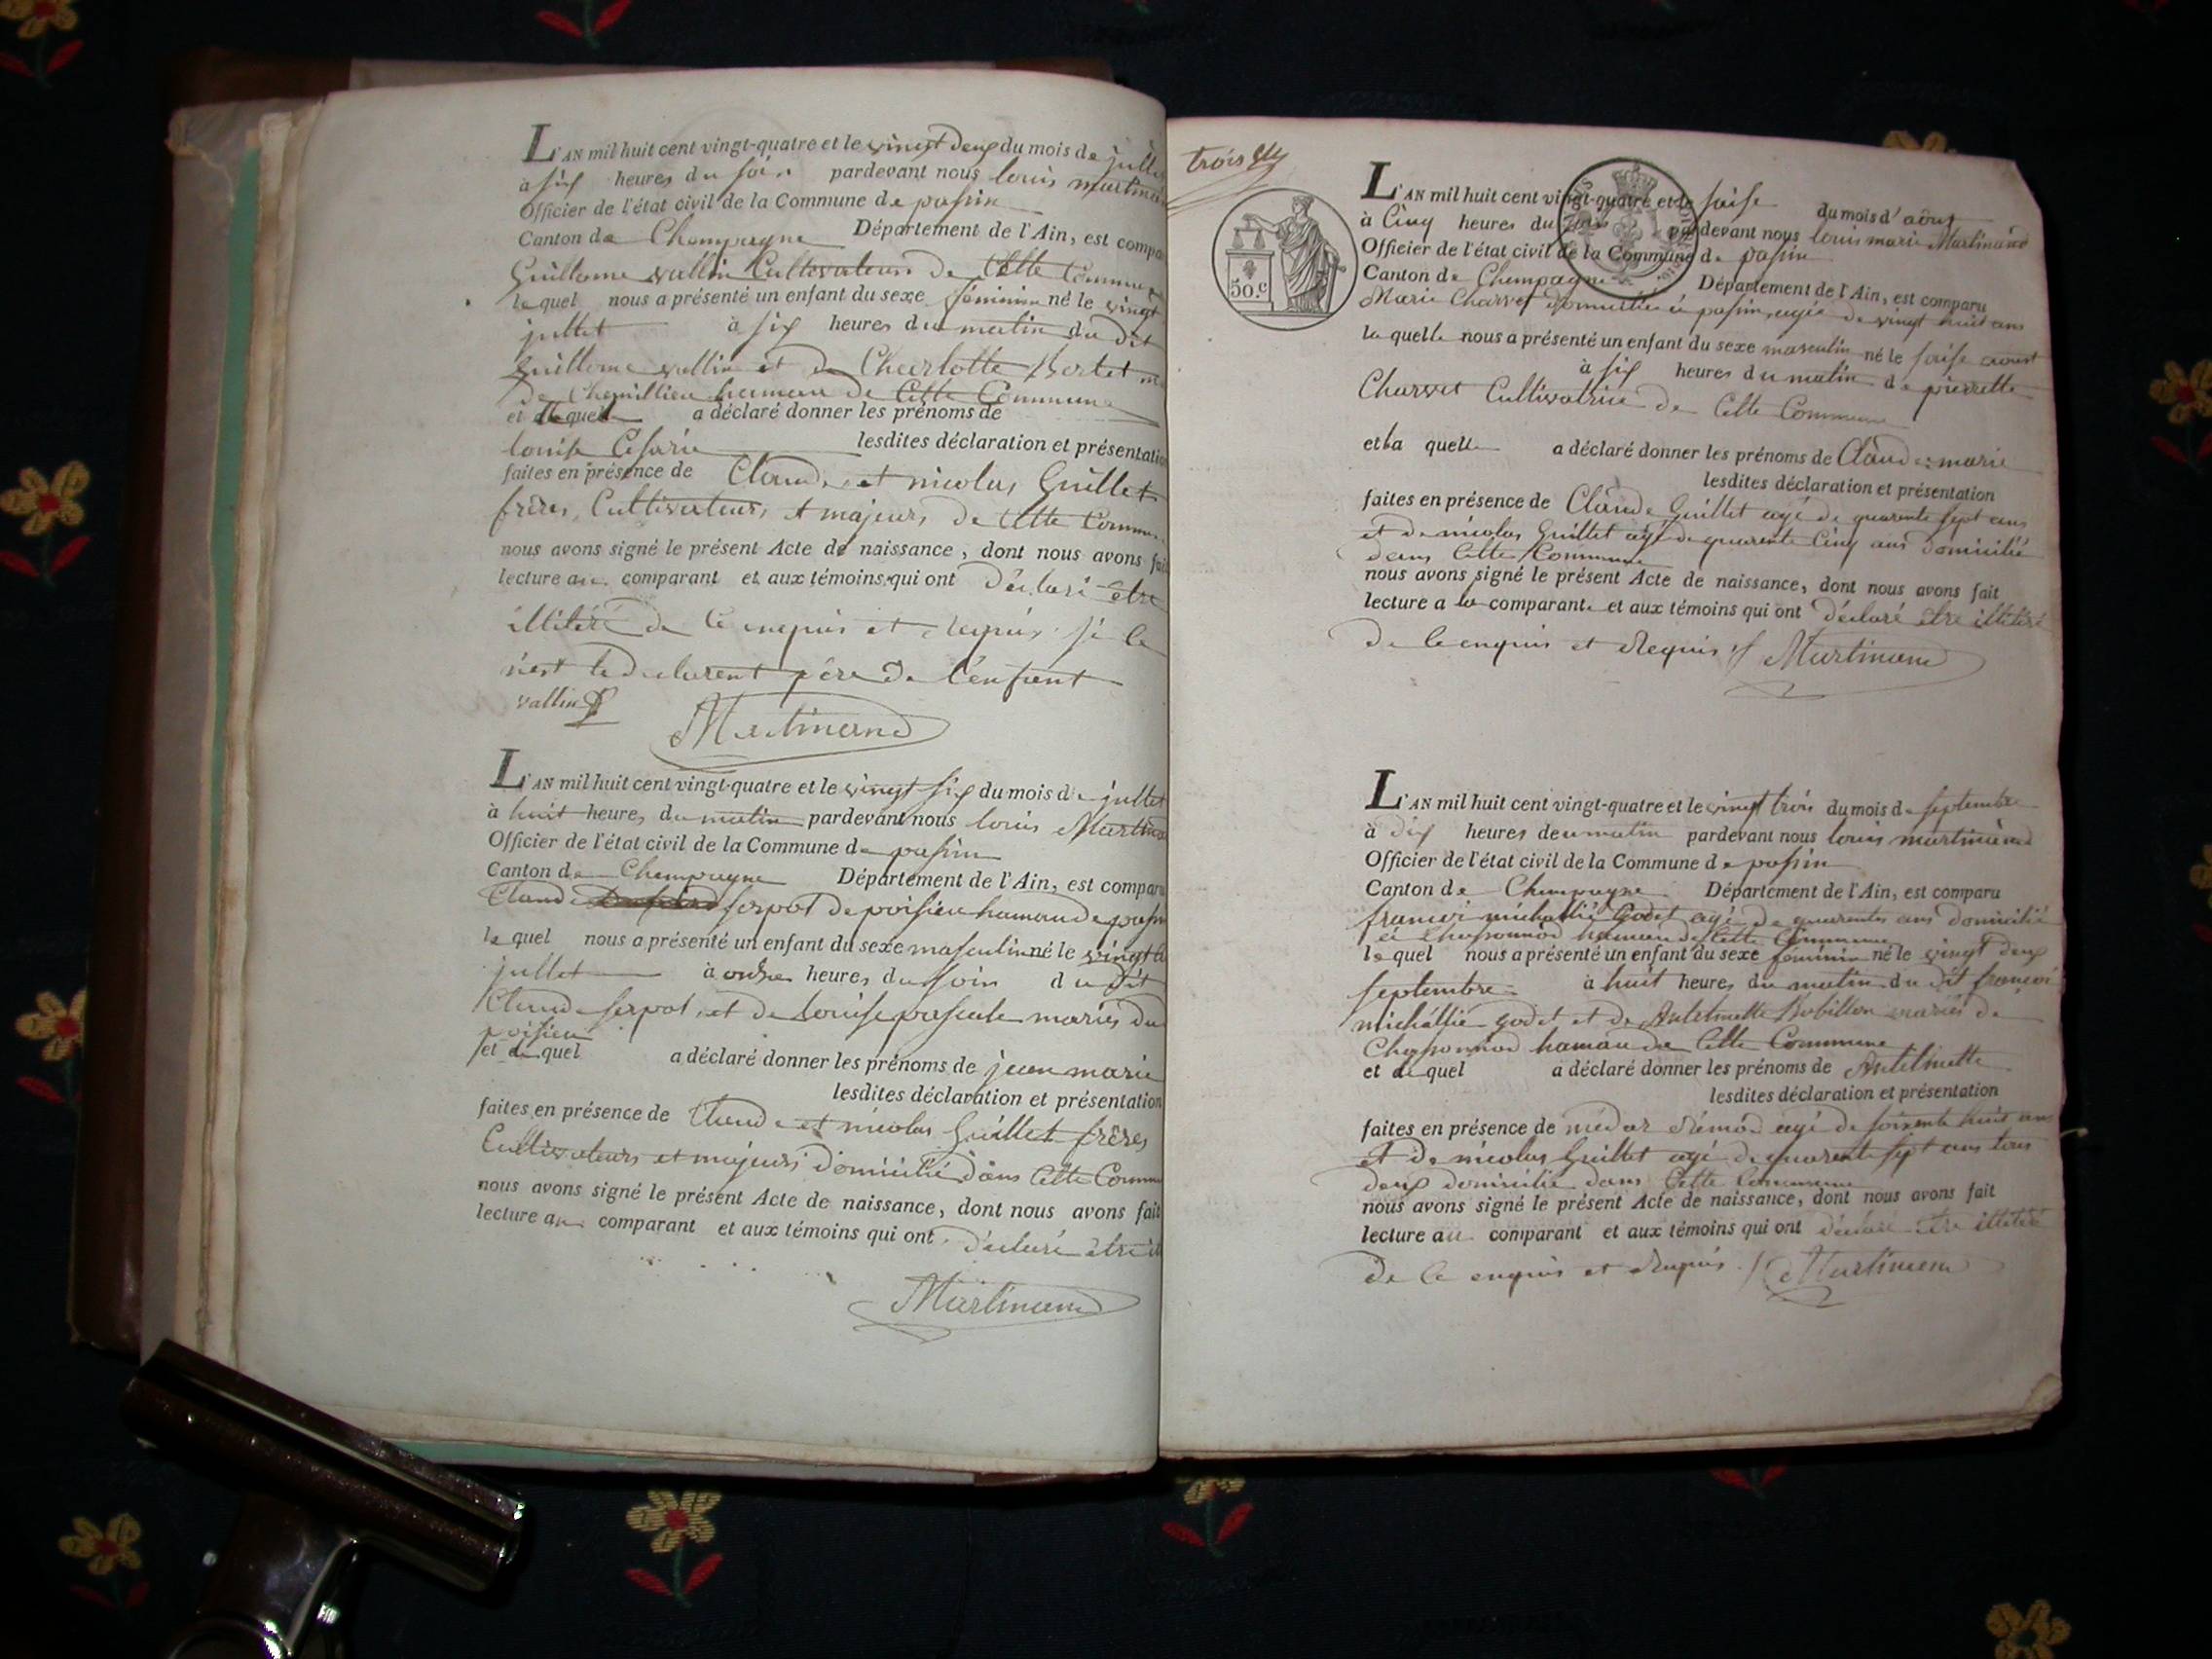 L'AN mil huit cent vingt-quatre et le vingt deux du mois de jullet
à six heures du soir pardevant nous louis martinand
Officier de l'état civil de la Commune de passin
Canton de Champagne Département de l'Ain, est compa
Guillome vallin Cultivateur de Cette Commune
le quel nous a présenté un enfant du sexe féminin né le vingt
jullet à six heures du matin du dit
Guillome vallin et de Charlotte Bertet
de Chemillieu hamau de Cette Commune
et lequel a déclaré donner les prénoms de
louise Césarie lesdites déclaration et présentatio
faites en présence de Claude et nicolas Guillet
frères, Cultivateurs et majeurs de Cette Commune
nous avons signé le présent Acte de naissance, dont nous avons fait
lecture au comparant et aux témoins qui ont déclaré être
illitéré de Ce enquis et requis si ce
n'est le declarent père de l'enfant
vallin
Martinand
L'AN mil huit cent vingt-quatre et le vingt six du mois de jullet
à huit heures du matin pardevant nous louis Martinand
Officier de l'état civil de la Commune de passin
Canton de Champagne Département de l'Ain, est comparu
Claude serpol de poisieu hamau de passin
le quel nous a présenté un enfant du sexe masculin né le vingt
jullet à onze heures du soir du dit
Claude serpol et de Louise pascale mariés du
poisieu
et le quel a déclaré donner les prénoms de jean marie
lesdites déclaration et présentation
faites en présence de Claude et nicolas Guillet frères
Cultivateurs et majeurs domicilié dans Cette Commune
nous avons signé le présent Acte de naissance, dont nous avons fait
lecture au comparant et aux témoins qui ont déclaré être
Martinand
trois
50.c
L'AN mil huit cent vingt-quatre et le saise du mois d'aout
à Cinq heures du soir pardevant nous louis marie Martinand
Officier de l'état civil de la Commune de passin
Canton de Champagne Département de l'Ain, est comparu
Marie Charvet domiciliée à passin, agée de vingt huit ans
la quelle nous a présenté un enfant du sexe masculin né le saise aoust
à six heures du matin de pierrette
Charvet Cultivatrice de Cette Commune
et la quelle a déclaré donner les prénoms de Claude marie
lesdites déclaration et présentation
faites en présence de Claude Guillet agé de quarente sept ans
et de nicolas Guillet agé de quarente Cinq ans domicilié
dans Cette Commune
nous avons signé le présent Acte de naissance, dont nous avons fait
lecture a la comparante et aux témoins qui ont déclaré être illitéré
de Ce enquis et Requis Martinand
L'AN mil huit cent vingt-quatre et le vingt trois du mois de septembre
à dix heures du matin pardevant nous louis martinand
Officier de l'état civil de la Commune de passin
Canton de Champagne Département de l'Ain, est comparu
francoi michallié Godet agé de quarentes ans domicilié
à Chaponnod hamau de Cette Commune
le quel nous a présenté un enfant du sexe féminin né le vingt deux
septembre à huit heures du matin du dit francoi
michallié godet et de Antelmette Robillon mariés de
Chaponnod hamau de Cette Commune
et le quel a déclaré donner les prénoms de Antelmette
lesdites déclaration et présentation
faites en présence de médar Rémod agé de soixente huit ans
et de nicolas Guillet agé de quarente sept ans tous
deux domicilié dans Cette Commune
nous avons signé le présent Acte de naissance, dont nous avons fait
lecture au comparant et aux témoins qui ont déclaré être illitéré
de Ce enquis et Requis Martinand